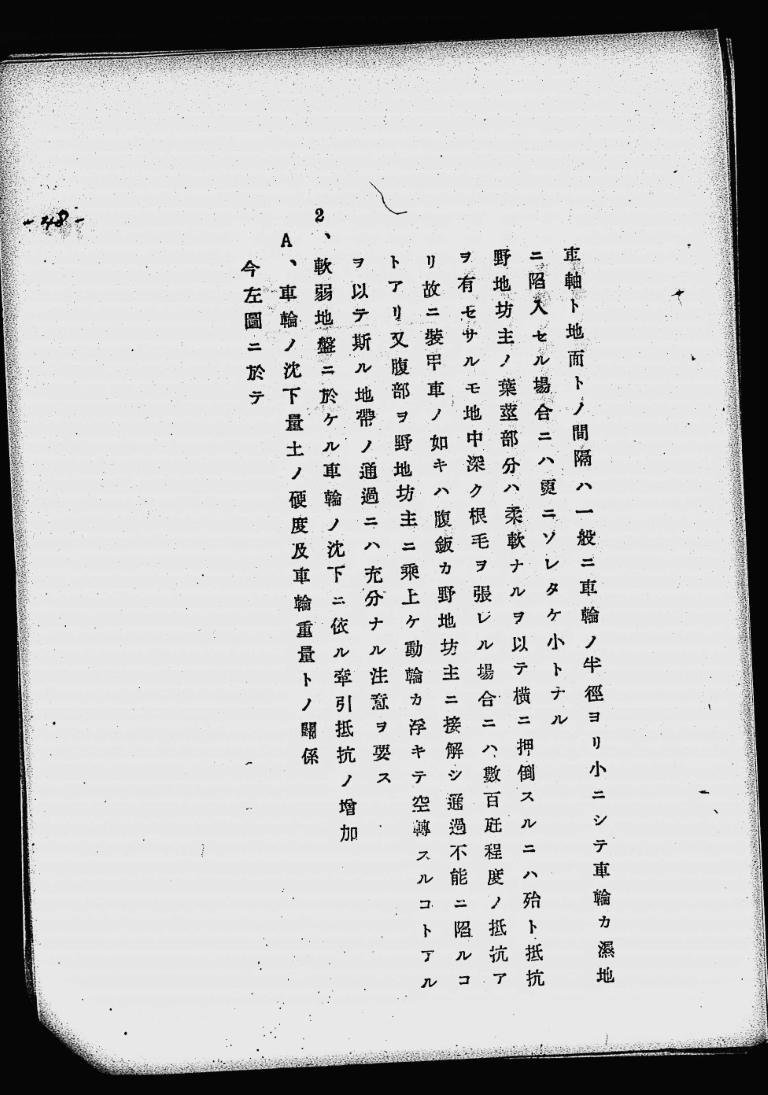 車軸ト地面トノ間隔ハ一般ニ車輪ノ半徑ヨリ小ニシテ車輪カ濕地
ニ陷入セル場合ニハ更ニソレタケ小トナル
野地坊主ノ葉莖部分ハ柔軟ナルヲ以テ橫ニ押倒スルニハ殆ト抵抗
ヲ有セサルモ地中深ク根毛ヲ張レル場合ニハ數百瓩程度ノ抵抗ア
リ故ニ裝甲車ノ如キハ腹鈑カ野地坊主ニ接解シ通過不能ニ陷ルコ
トアリ又腹部ヲ野地坊主ニ乘上ケ動輪カ浮キテ空轉スルコトアル
ヲ以テ斯ル地帶ノ通過ニハ充分ナル注意ヲ要ス
2、軟弱地盤ニ於ケル車輪ノ沈下ニ依ル牽引抵抗ノ增加
A、車輪ノ沈下量土ノ硬度及車輪重量トノ關係
今左圖ニ於テ
-48-